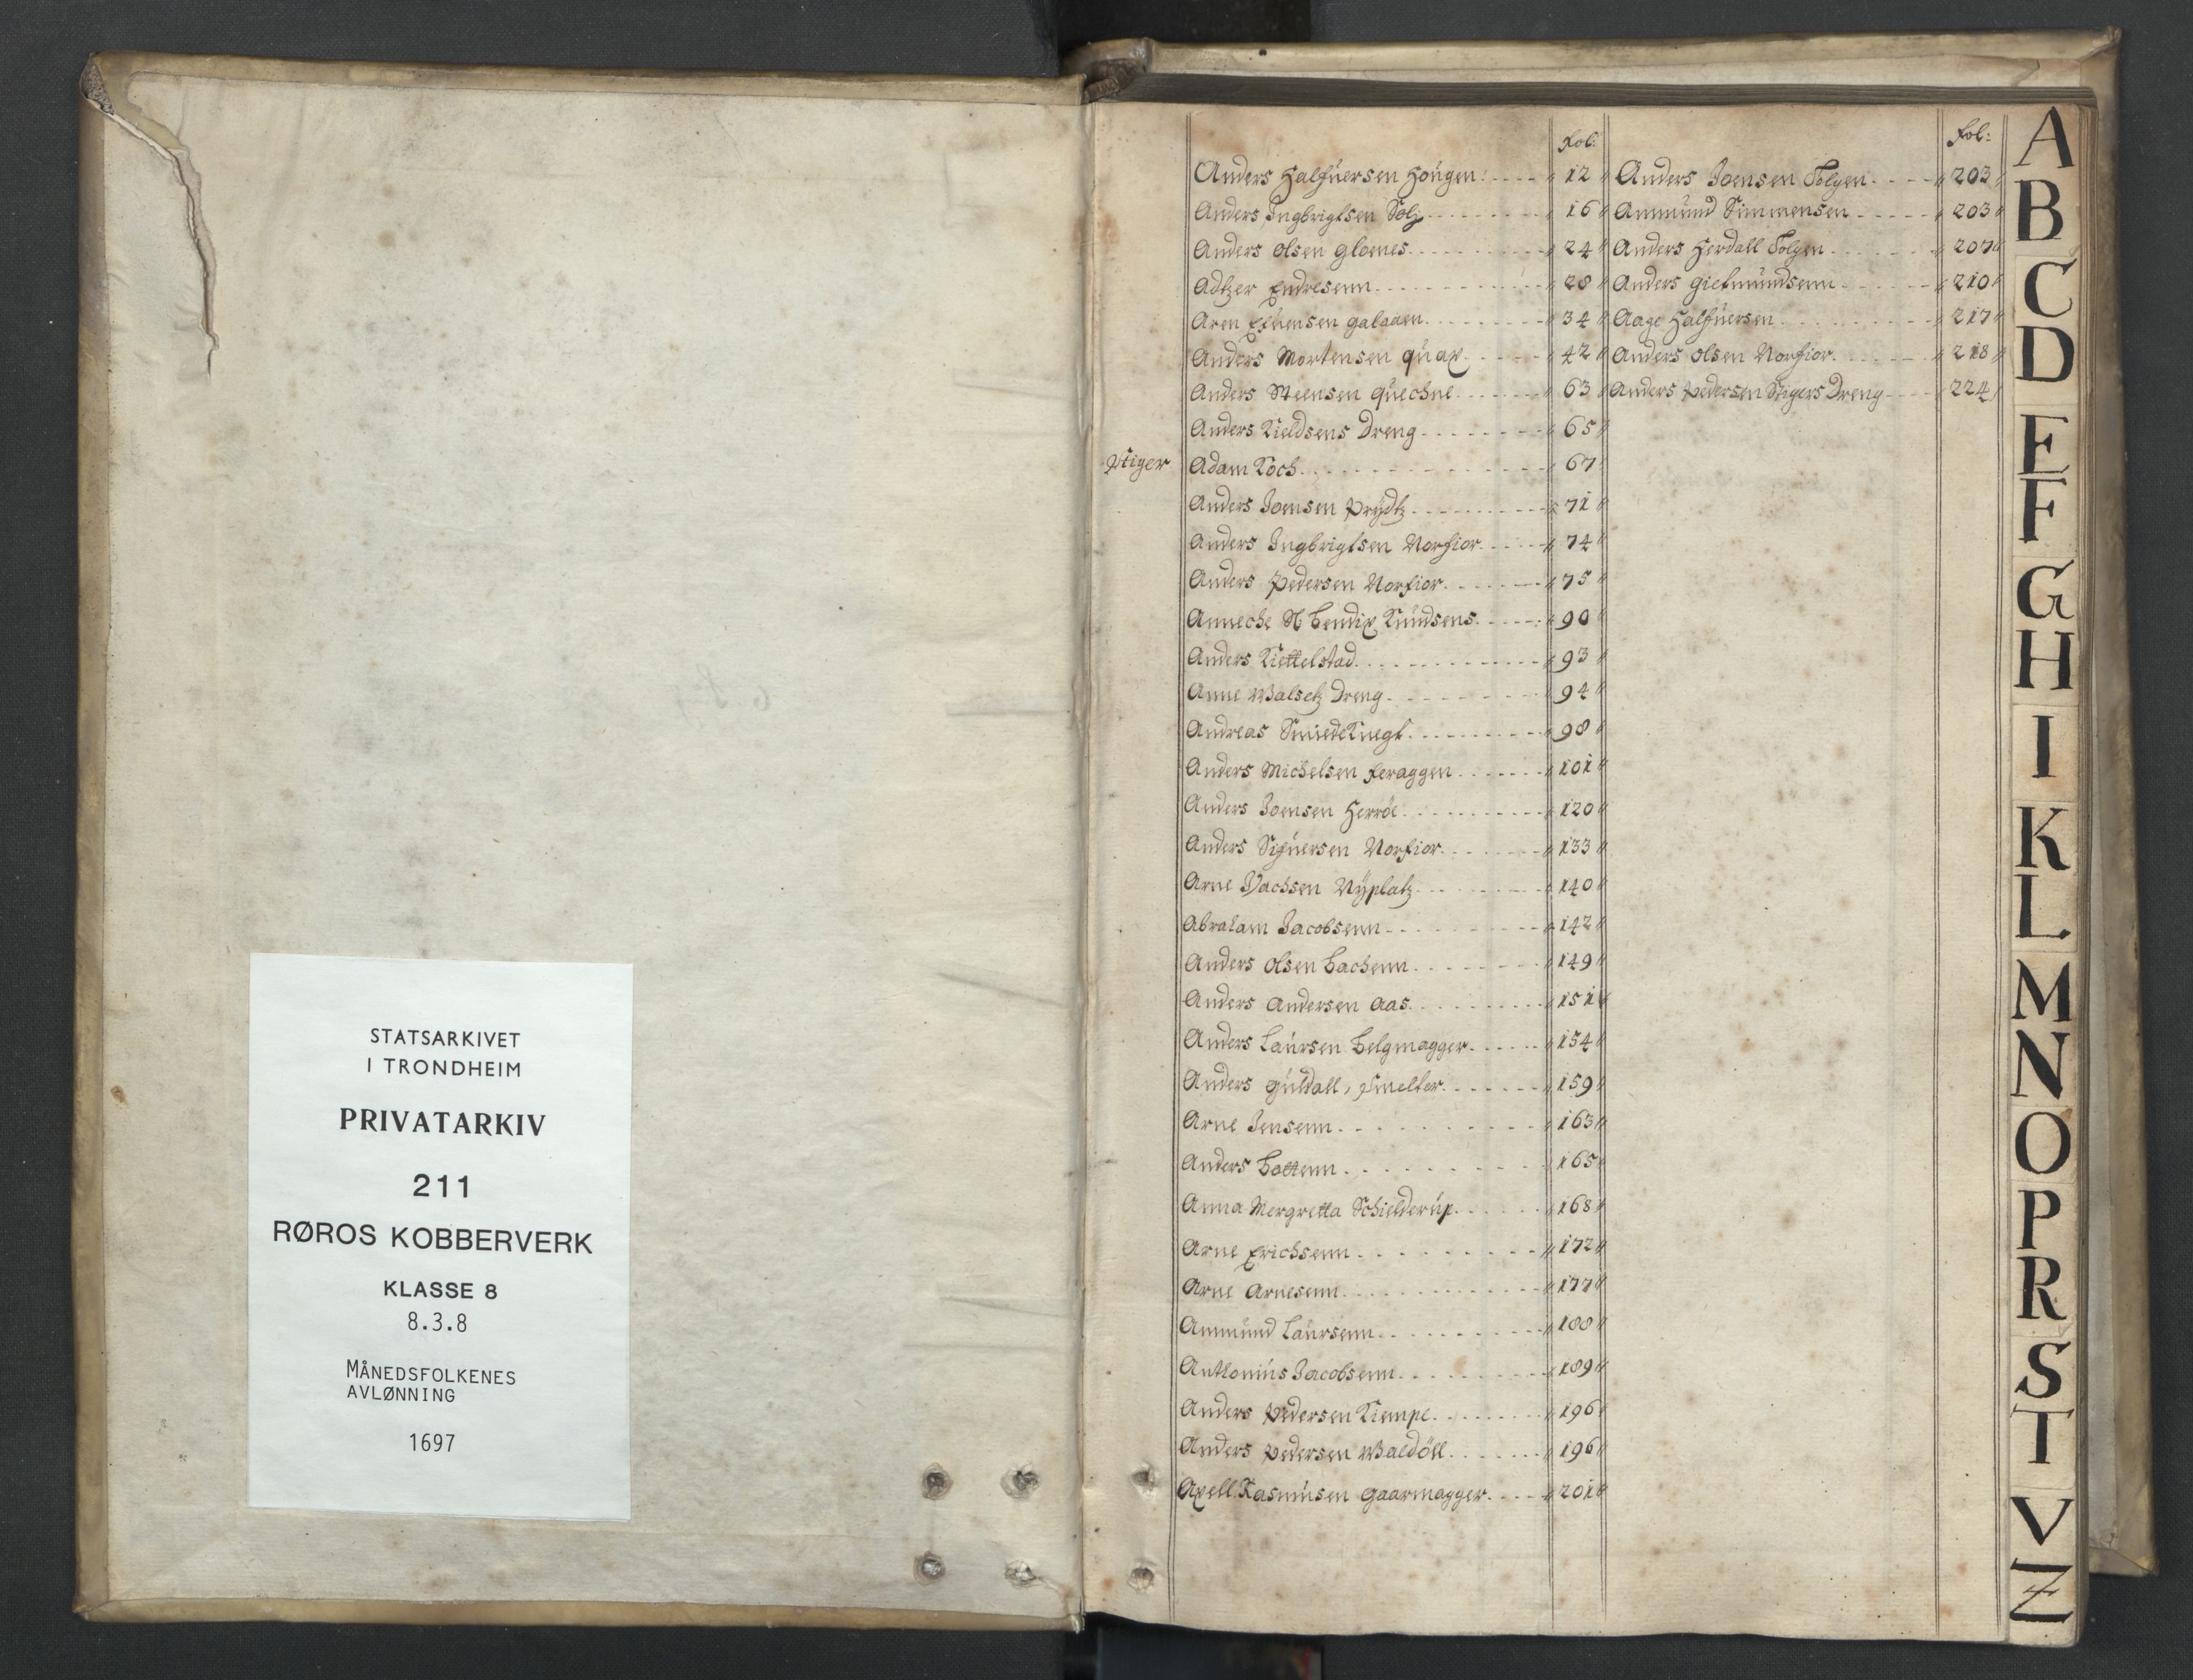 STATSARKIVET
I TRONDHEIM
PRIVATARKIV
211
RØROS KOBBERVERK
KLASSE 8
8.3.8
MÅNEDSFOLKENES
AVLØNNING
1697
Fol:
Anders Halfuersen Hougen 12
Anders Ingbrigtsen Solz 16
Anders Olsen Gloenes 24
Adtzer Endresenn 28
Aren Galaaen 34
Anders Mortensen Quax 42
Anders Steensen Quechne 63
Anders Kieldsens Dreng 65
Stiger Adam Koch 67
Anders Joensen Prydtz 71
Anders Ingbrigtsen Norfior 74
Anders Pedersen Norfior 75
Anneche Sl Bendix Knudsens 90
Anders Kiettelstad 93
Anne Walsetz Dreng 94
Andreas SmiedeKnegt 98
Anders Michelsen Feraggen 101
Anders Joensen Herröe 120
Anders Sifuersen Norfior 133
Arne Nyplatz 140
Abraham Jacobsenn 142
Anders Olsen Bachenn 149
Anders Andersen Aas 151
Anders Laursen Belgmagger 154
Anders Guldall, Smelter 159
Arne Jensenn 163
Anders Bottenn 165
Anna Mergretta Schielderup 168
Arne Erichsenn 172
Arne Arnesenn 177
Ammund Laursenn 188
Anthonius Jacobsenn 189
Anders Pedersen Kiempe 196
Anders Pedersen Waldöll 196
Axell Rasmusen Gaarmagger 201
Fol:
Anders Joensen Tolgen 203
Ammund Simmensen 203
Anders Herdall Tolgen 207
Anders Giefmundsenn 210
Aage Halfuersen 217
Anders Olsen Norfior 218
Anders Pedersen Stigers Dreng 224
A
B
C
D
E
F
G
H
I
K
L
M
N
O
P
R
S
T
V
Z